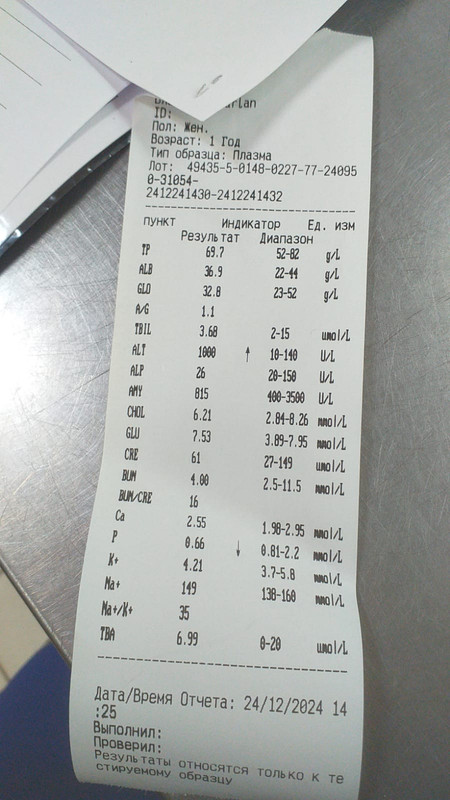 ID:
Пол: Жен.
Возраст: 1 Год
Тип образца: Плазма
Лот: 49435-5-0148-0227-77-24095
0-31054-
2412241430-2412241432
пункт Индикатор Ед. изм
Результат Диапазон
TP 69.7 52-82 g/L
ALB 36.9 22-44 g/L
GLO 32.8 23-52 g/L
A/G 1.1
TBIL 3.68 2-15 umol/L
ALT 1000 ↑ 10-140 U/L
ALP 26 20-150 U/L
AMY 815 400-3500 U/L
CHOL 6.21 2.84-8.26 mmol/L
GLU 7.53 3.89-7.95 mmol/L
CRE 61 27-149 umol/L
BUN 4.00 2.5-11.5 mmol/L
BUN/CRE 16
Ca 2.55 1.98-2.95 mmol/L
P 0.66 ↓ 0.81-2.2 mmol/L
K+ 4.21 3.7-5.8 mmol/L
Na+ 149 138-160 mmol/L
Na+/K+ 35
TBA 6.99 0-20 umol/L
Дата/Время Отчета: 24/12/2024 14
:25
Выполнил:
Проверил:
Результаты относятся только к те
стируемому образцу